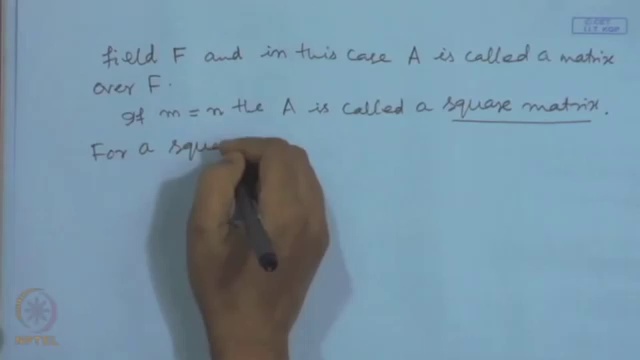 field F and in this case A is called a matrix
over F.
If m = n the A is called a square matrix.
For a squa
NPTEL